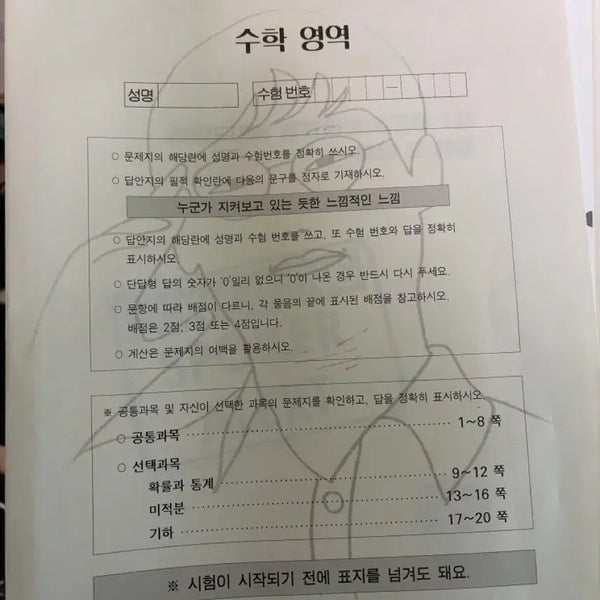 수학 영역
성명
수험 번호 –
○ 문제지의 해당란에 성명과 수험번호를 정확히 쓰시오.
○ 답안지의 필적 확인란에 다음의 문구를 정자로 기재하시오.
누군가 지켜보고 있는 듯한 느낌적인 느낌
○ 답안지의 해당란에 성명과 수험 번호를 쓰고, 또 수험 번호와 답을 정확히
표시하시오.
○ 단답형 답의 숫자가 '0'일리 없으니 '0'이 나온 경우 반드시 다시 푸세요.
○ 문항에 따라 배점이 다르니, 각 물음의 끝에 표시된 배점을 참고하시오.
배점은 2점, 3점 또는 4점입니다.
○ 계산은 문제지의 여백을 활용하시오.
※ 공통과목 및 자신이 선택한 과목의 문제지를 확인하고, 답을 정확히 표시하시오.
○ 공통과목 1~8 쪽
○ 선택과목
확률과 통계 9~12 쪽
미적분 13~16 쪽
기하 17~20 쪽
※ 시험이 시작되기 전에 표지를 넘겨도 돼요.